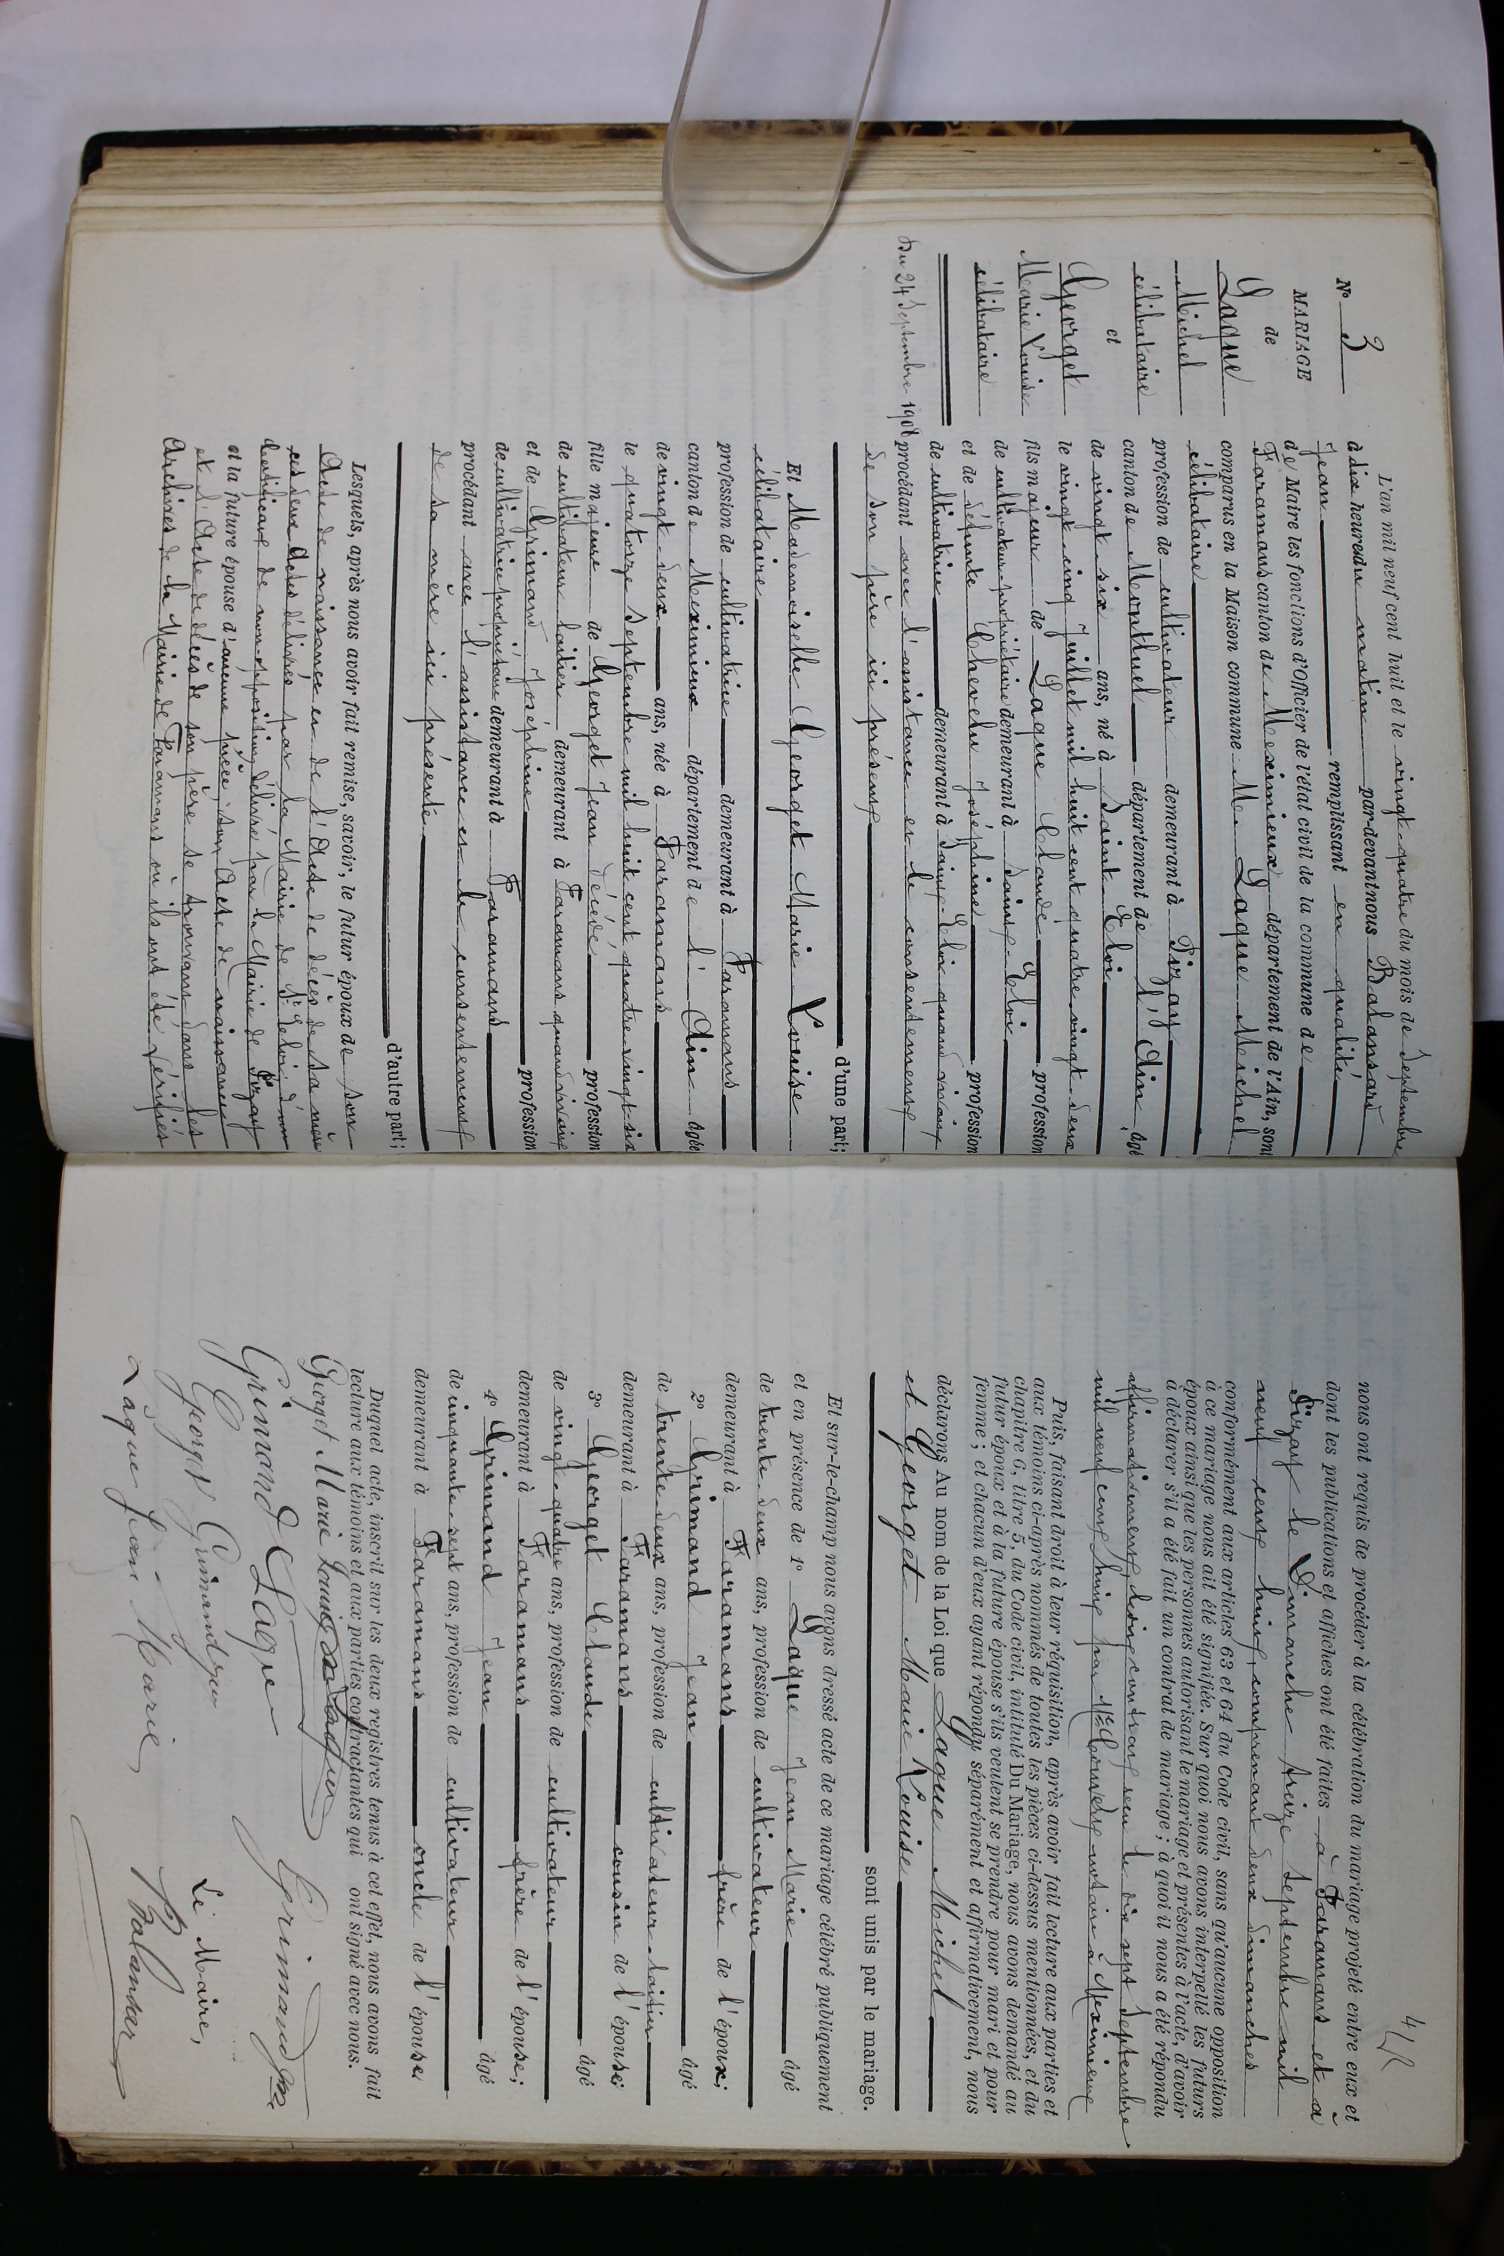 Nº 3
MARIAGE
de
Laque
Michel
célibataire
et
Georget
Marie Louise
célibataire
Du 24 Septembre 1908
L'an mil neuf cent huit et le vingt-quatre du mois de Septembre
à dix heures du matin par-devant nous Balansard
Jean remplissant en qualité
de Maire les fonctions d'Officier de l'état civil de la commune de
Faramans canton de Meximieux département de l'Ain, sont
comparus en la Maison commune M. Laque Michel
célibataire
profession de cultivateur demeurant à Pizay
canton de Montluel département de l'Ain, âgé
de vingt-six ans, né à Saint-Eloi
le vingt cinq Juillet mil huit cent quatre vingt-deux
fils majeur de Laque Claude profession
de cultivateur-propriétaire demeurant à Saint-Eloi
et de défunte Chevelu Joséphine profession
de cultivatrice demeurant à Saint-Eloi quand vivait
procédant avec l'assistance et le consentement
de son père ici présent
d'une part;
Et Mademoiselle Georget Marie Louise
célibataire
profession de cultivatrice demeurant à Faramans
canton de Meximieux département de l'Ain âgée
de vingt-deux ans, née à Faramans
le quatorze Septembre mil huit cent quatre-vingt-six
fille majeure de Georget Jean décédé profession
de cultivateur laitier demeurant à Faramans quand vivait
et de Grimand Joséphine profession
de cultivatrice propriétaire demeurant à Faramans
procédant avec l'assistance et le consentement
de sa mère ici présente
d'autre part;
Lesquels, après nous avoir fait remise, savoir, le futur époux de son
Acte de naissance et de l'Acte de décès de sa mère
ces deux Actes délivrés par la Mairie de St Eloi, d'un
certificat de non-opposition délivré par la Mairie de Pizay
et la future épouse d'aucune pièce, son Acte de naissance
et l'Acte de décès de son père se trouvant dans les
Archives de la Mairie de Faramans où ils ont été vérifiés
4
nous ont requis de procéder à la célébration du mariage projeté entre eux et
dont les publications et affiches ont été faites à Faramans et à
Pizay le Dimanche treize Septembre mil
neuf cent huit, comprenant deux dimanches
conformément aux articles 63 et 64 du Code civil, sans qu'aucune opposition
à ce mariage nous ait été signifiée. Sur quoi nous avons interpellé les futurs
époux ainsi que les personnes autorisant le mariage et présentes à l'acte, d'avoir
à déclarer s'il a été fait un contrat de mariage; à quoi il nous a été répondu
affirmativement, dit contrat reçu le dix sept Septembre
mil neuf cent huit par Me notaire à Meximieux
Puis, faisant droit à leur réquisition, après avoir fait lecture aux parties et
aux témoins ci-après nommés de toutes les pièces ci-dessus mentionnées, et du
chapitre 6, titre 5, du Code civil, intitulé Du Mariage, nous avons demandé au
futur époux et à la future épouse s'ils veulent se prendre pour mari et pour
femme; et chacun d'eux ayant répondu séparément et affirmativement, nous
déclarons Au nom de la Loi que Laque Michel
et Georget Marie Louise
sont unis par le mariage.
Et sur-le-champ nous avons dressé acte de ce mariage célébré publiquement
et en présence de 1º Laque Jean Marie âgé
de trente-deux ans, profession de cultivateur
demeurant à Faramans frère de l'époux;
2º Grimand Jean âgé
de trente-deux ans, profession de cultivateur-laitier
demeurant à Faramans cousin de l'épouse;
3º Georget Claude âgé
de vingt-quatre ans, profession de cultivateur
demeurant à Faramans frère de l'épouse;
4º Grimand Jean âgé
de cinquante-sept ans, profession de cultivateur
demeurant à Faramans oncle de l'épouse;
Duquel acte, inscrit sur les deux registres tenus à cet effet, nous avons fait
lecture aux témoins et aux parties contractantes qui ont signé avec nous.
Georget Marie Louise
Grimand Laque
C Georget Grimand
Laque Jean Marie
Le Maire,
Balansard